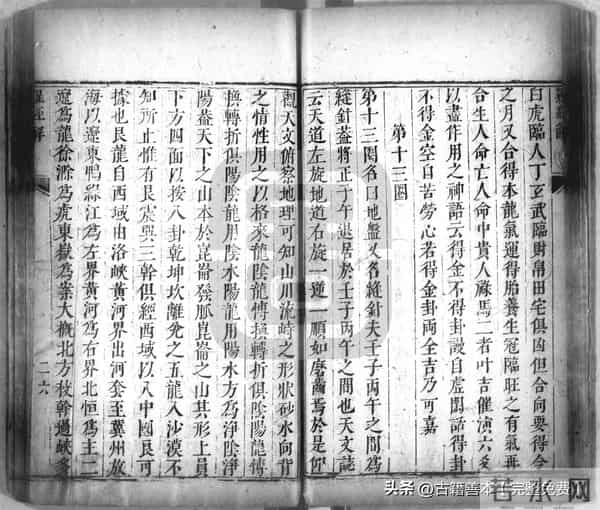 曰虎臨人丁玄武臨財帛田宅俱凶但合向要得今
之月又合得本龍氣運得胎養生冠臨旺之有氣再
合生人命亡人命中貴人祿馬二者叶吉催演六爻
以盡作用之神語云得金不得卦謾自虛閒話得卦
不得金空自苦勞心若得金卦兩全吉乃可嘉
第十三圈
第十三圈名曰地盤又名縫針夫壬子丙午之間為
縫針蓋將正子午退居於壬子丙午之間也天文誌
云天道左旋地道右旋一逆一順如磨焉於是仰
觀天文俯察地理可知山川流峙之形狀砂水向背
之情性用之以格來龍陰龍博換轉折俱陰陽龍博
換轉折俱陽陰龍用陰水陽龍用陽水方為淨陰淨
陽蓋天下之山本於崑崙發脈崑崙之山其形上員
下方四面以按八卦乾坤坎離兌之五龍入沙漠不
知所止惟有艮震巽三幹俱經西域以入中國艮可
據也艮龍自西域由洛峽黃河界出河套至冀州放
海以遼東鴨綠江為左界黃河為右界北恒為主二
遼為龍徐滁為虎東嶽為案大概北方枝幹過峽多
羅經解
二六
头条 @古籍善本 完整免费
善本网